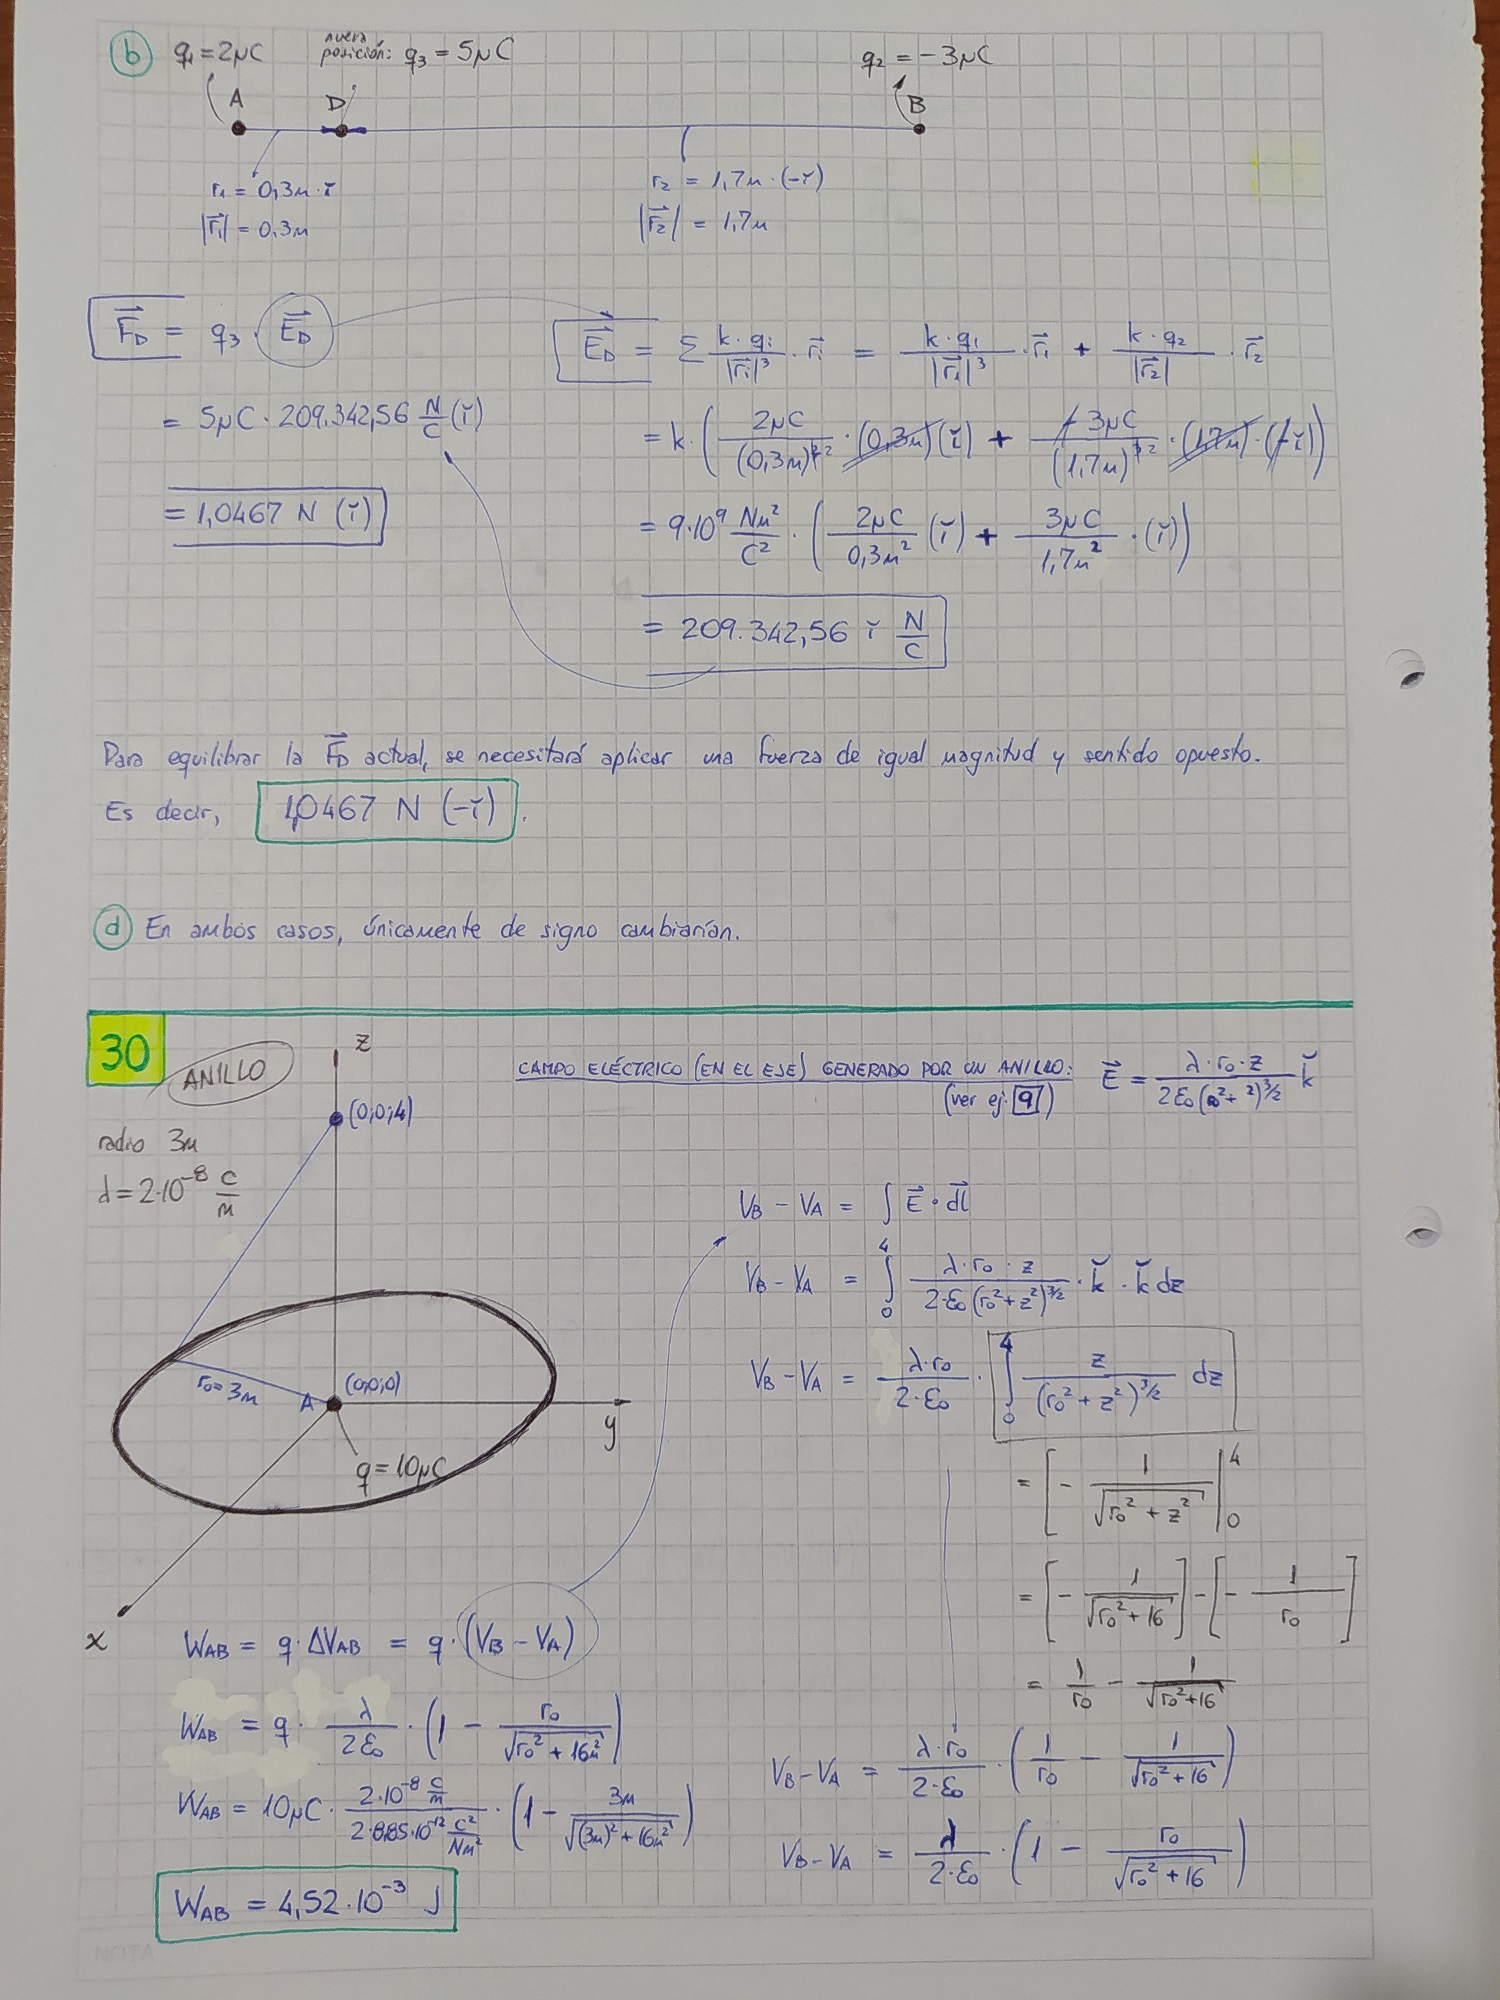 b q₁ = 2μC nueva posición: q₃ = 5μC q₂ = -3μC
A D B
r₁ = 0,3m · ǐ r₂ = 1,7m · (-ǐ)
|r⃗₁| = 0,3m |r⃗₂| = 1,7m
F⃗_D = q₃ · E⃗_D
= 5μC · 209.342,56 N/C (ǐ)
= 1,0467 N (ǐ)
E⃗_D = Σ k·qᵢ/|r⃗ᵢ|³ · r⃗ᵢ = k·q₁/|r⃗₁|³ · r⃗₁ + k·q₂/|r⃗₂| · r⃗₂
= k · ( 2μC/(0,3m)² · (0,3m)(ǐ) + -3μC/(1,7m)² · (1,7m) · (-ǐ) )
= 9·10⁹ Nm²/C² · ( 2μC/0,3m² (ǐ) + 3μC/1,7m² · (ǐ) )
= 209.342,56 ǐ N/C
Para equilibrar la F⃗_D actual, se necesitará aplicar una fuerza de igual magnitud y sentido opuesto.
Es decir, 1,0467 N (-ǐ).
d En ambos casos, únicamente de signo cambiarían.
30 ANILLO
radio 3m
λ = 2·10⁻⁸ C/m
z
(0;0;4)
r₀ = 3m
A (0;0;0)
y
q = 10μC
x
CAMPO ELÉCTRICO (EN EL EJE) GENERADO POR UN ANILLO: E⃗ = λ·r₀·z/2ε₀(r₀²+ ²)^3/2 ǩ
(ver ej. 9)
V_B - V_A = ∫ E⃗ · dl⃗
V_B - V_A = ∫₀⁴ λ·r₀·z/2·ε₀(r₀²+z²)^3/2 · ǩ · ǩ dz
V_B - V_A = λ·r₀/2·ε₀ · ∫₀⁴ z/(r₀²+z²)^3/2 dz
= [ - 1/√(r₀²+z²) |₀⁴
= [ - 1/√(r₀²+16) ] - [ - 1/r₀ ]
= 1/r₀ - 1/√(r₀²+16)
V_B - V_A = λ·r₀/2·ε₀ · ( 1/r₀ - 1/√(r₀²+16) )
V_B - V_A = λ/2·ε₀ · ( 1 - r₀/√(r₀²+16) )
W_AB = q · ΔV_AB = q · (V_B - V_A)
W_AB = q · λ/2ε₀ · ( 1 - r₀/√(r₀²+16m²) )
W_AB = 10μC · 2·10⁻⁸ C/m / 2·8,85·10⁻¹² C²/Nm² · ( 1 - 3m/√((3m)²+16m²) )
W_AB = 4,52·10⁻³ J
NOTA